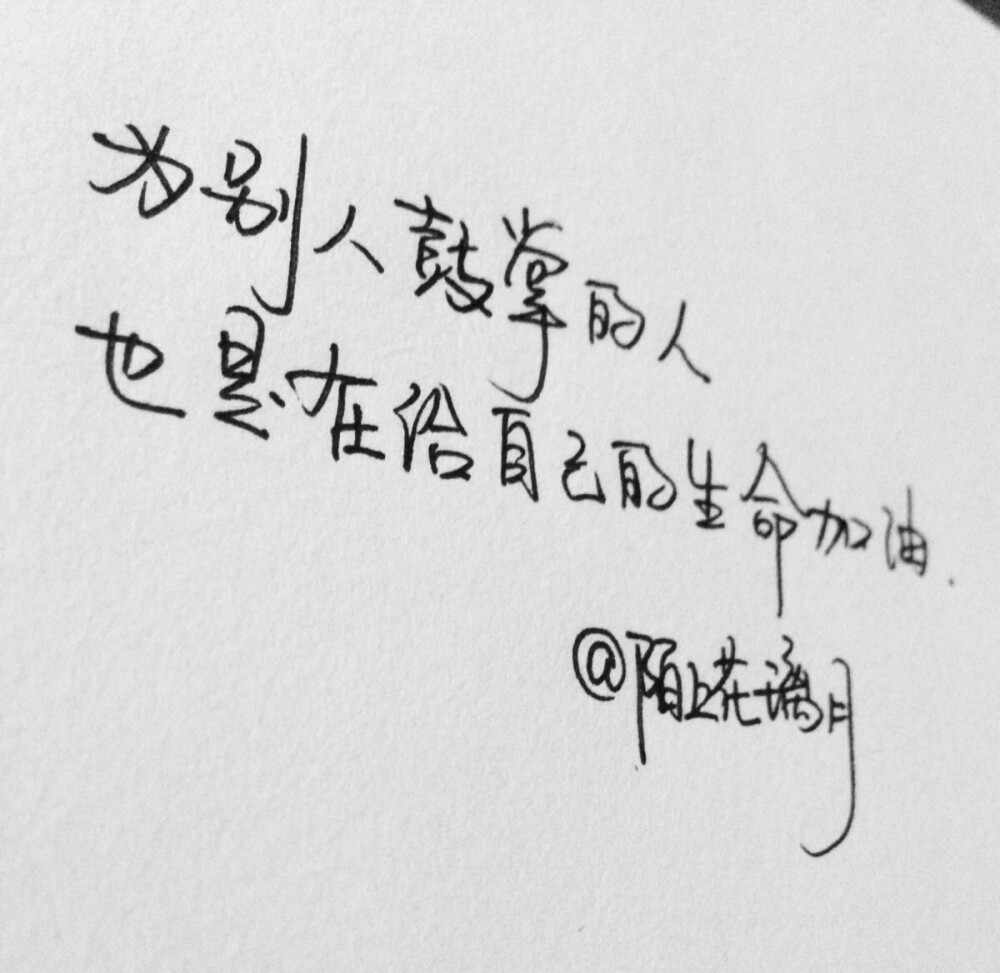 为别人鼓掌的人
也是在给自己的生命加油.
@陌上花璃月